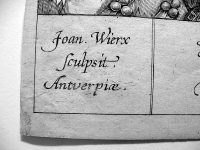 Joan. Wierx
sculpsit.
Antverpiæ.